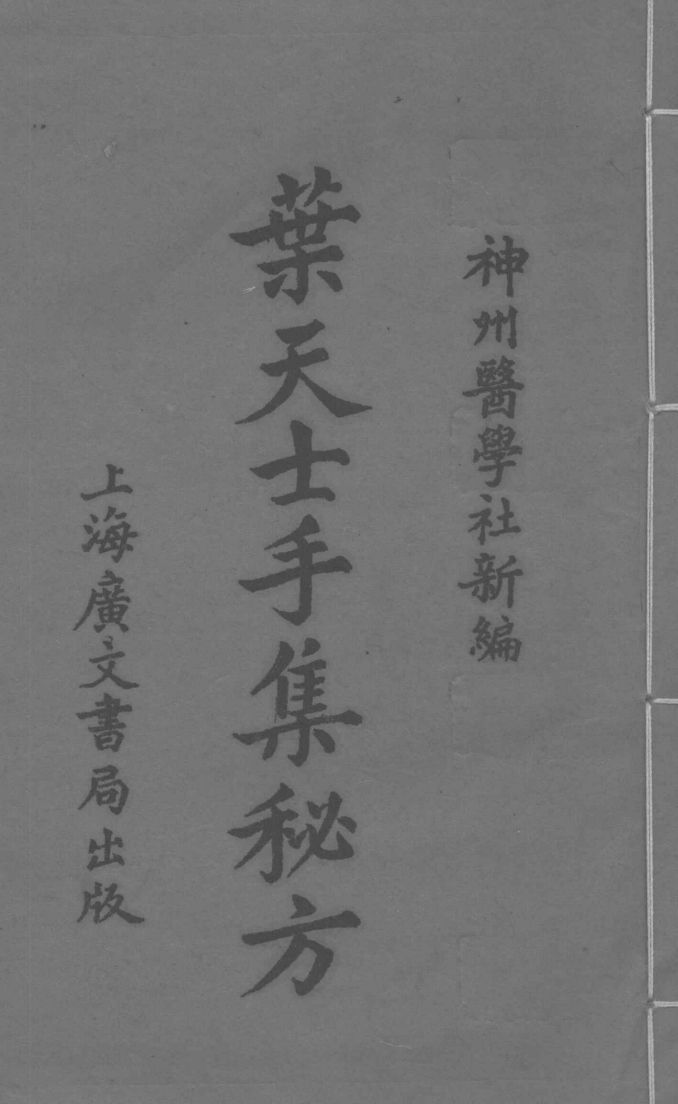 神州醫學社新編
葉天士手集秘方
上海廣文書局出版